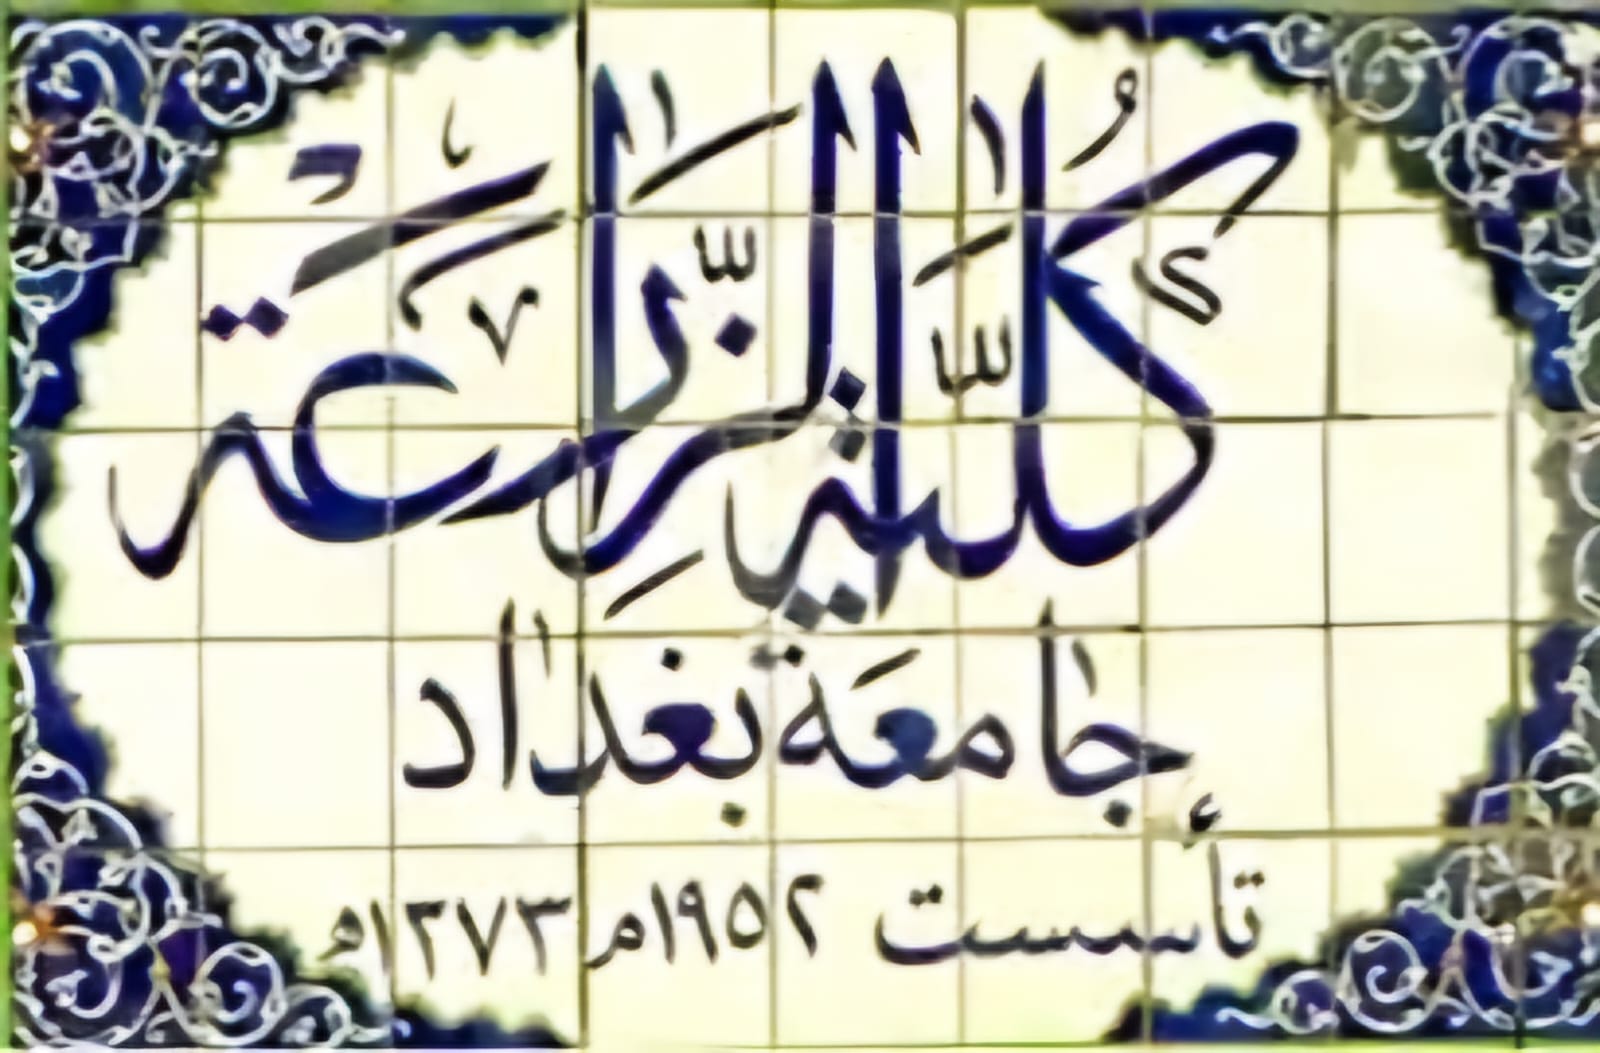 كُلِّيَّةُ الزِّرَاعَةِ
جامعَة بغداد
تأسست ١٩٥٢م ١٣٧٣ه